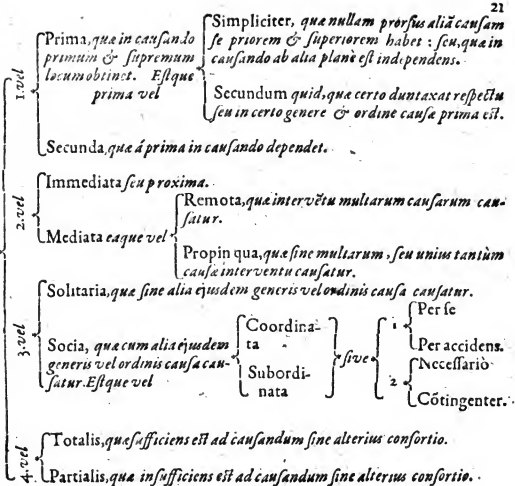 21
1. vel
Prima, quæ in causando
primum & supremum
locum obtinet. Estque
prima vel
Simpliciter, quæ nullam prorsus aliā causam
se priorem & superiorem habet : seu, quæ in
causando ab alia planè est independens.
Secundum quid, quæ certo duntaxat respectu
seu in certo genere & ordine causæ prima est.
Secunda, quæ á prima in causando dependet.
2. vel
Immediata seu proxima.
Mediata eaque vel
Remota, quæ intervētu multarum causarum cau-
satur.
Propin qua, quæ sine multarum, seu unius tantùm
causæ interventu causatur.
3. vel
Solitaria, quæ sine alia ejusdem generis vel ordinis causa causatur.
Socia, quæ cum alia ejusdem
generis vel ordinis causa cau-
satur. Estque vel
Coordina-
ta
Subordi-
nata
sive
1
Per se
Per accidens.
2
Necessariò
Cōtingenter.
4. vel
Totalis, quæ sufficiens est ad causandum sine alterius consortio.
Partialis, quæ insufficiens est ad causandum sine alterius consortio.